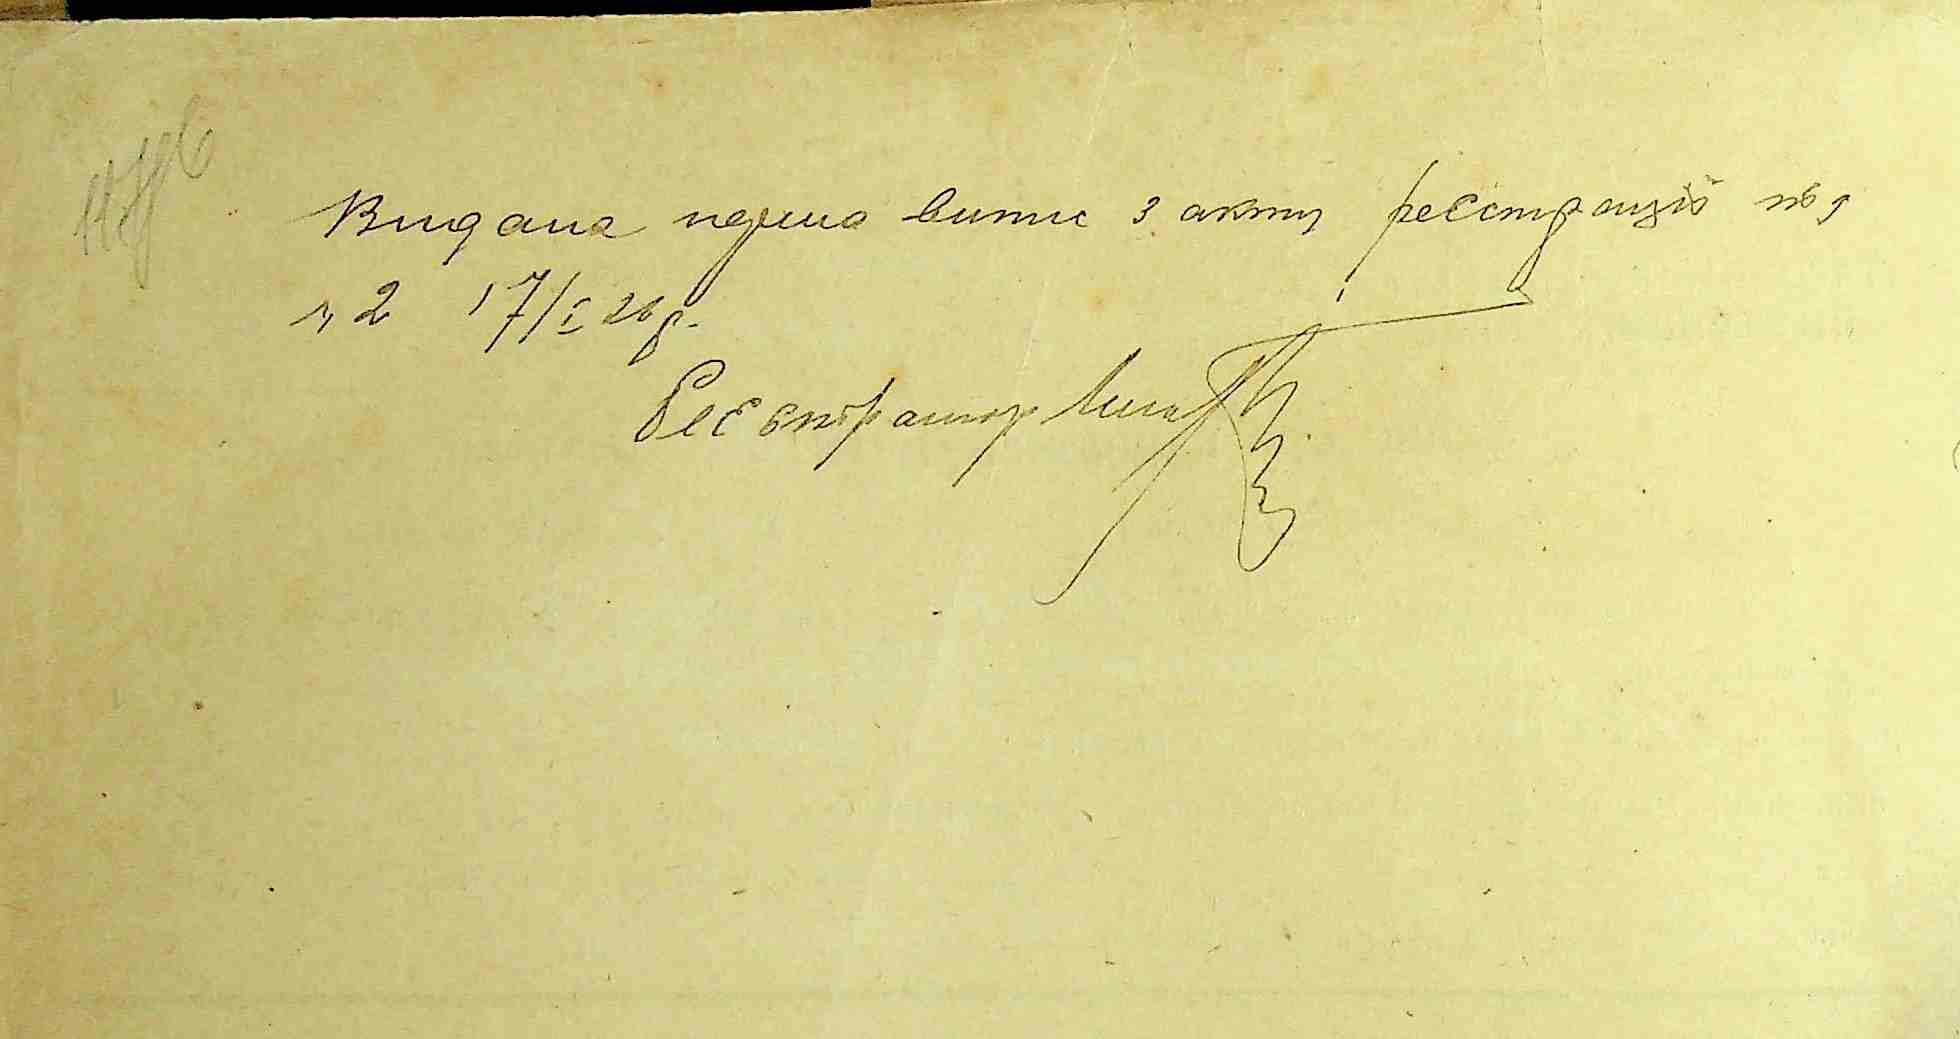 Видана перша випис з акту реєстрації під
ч 2 17/I 26 р.
Реєстратор